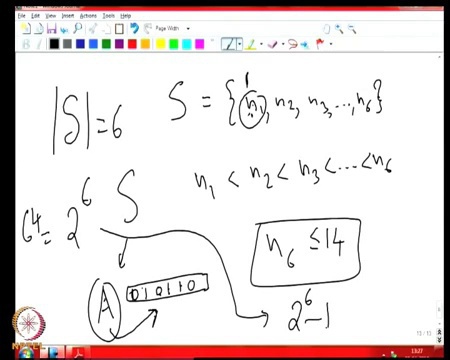 File Edit View Insert Actions Tools Help
Page Width
1
|S| = 6 S = {n1, n2, n3, ..., n6}
n1 < n2 < n3 < ... < n6
64 = 2^6 S
n6 ≤ 14
A 010110
2^6 - 1
13:27